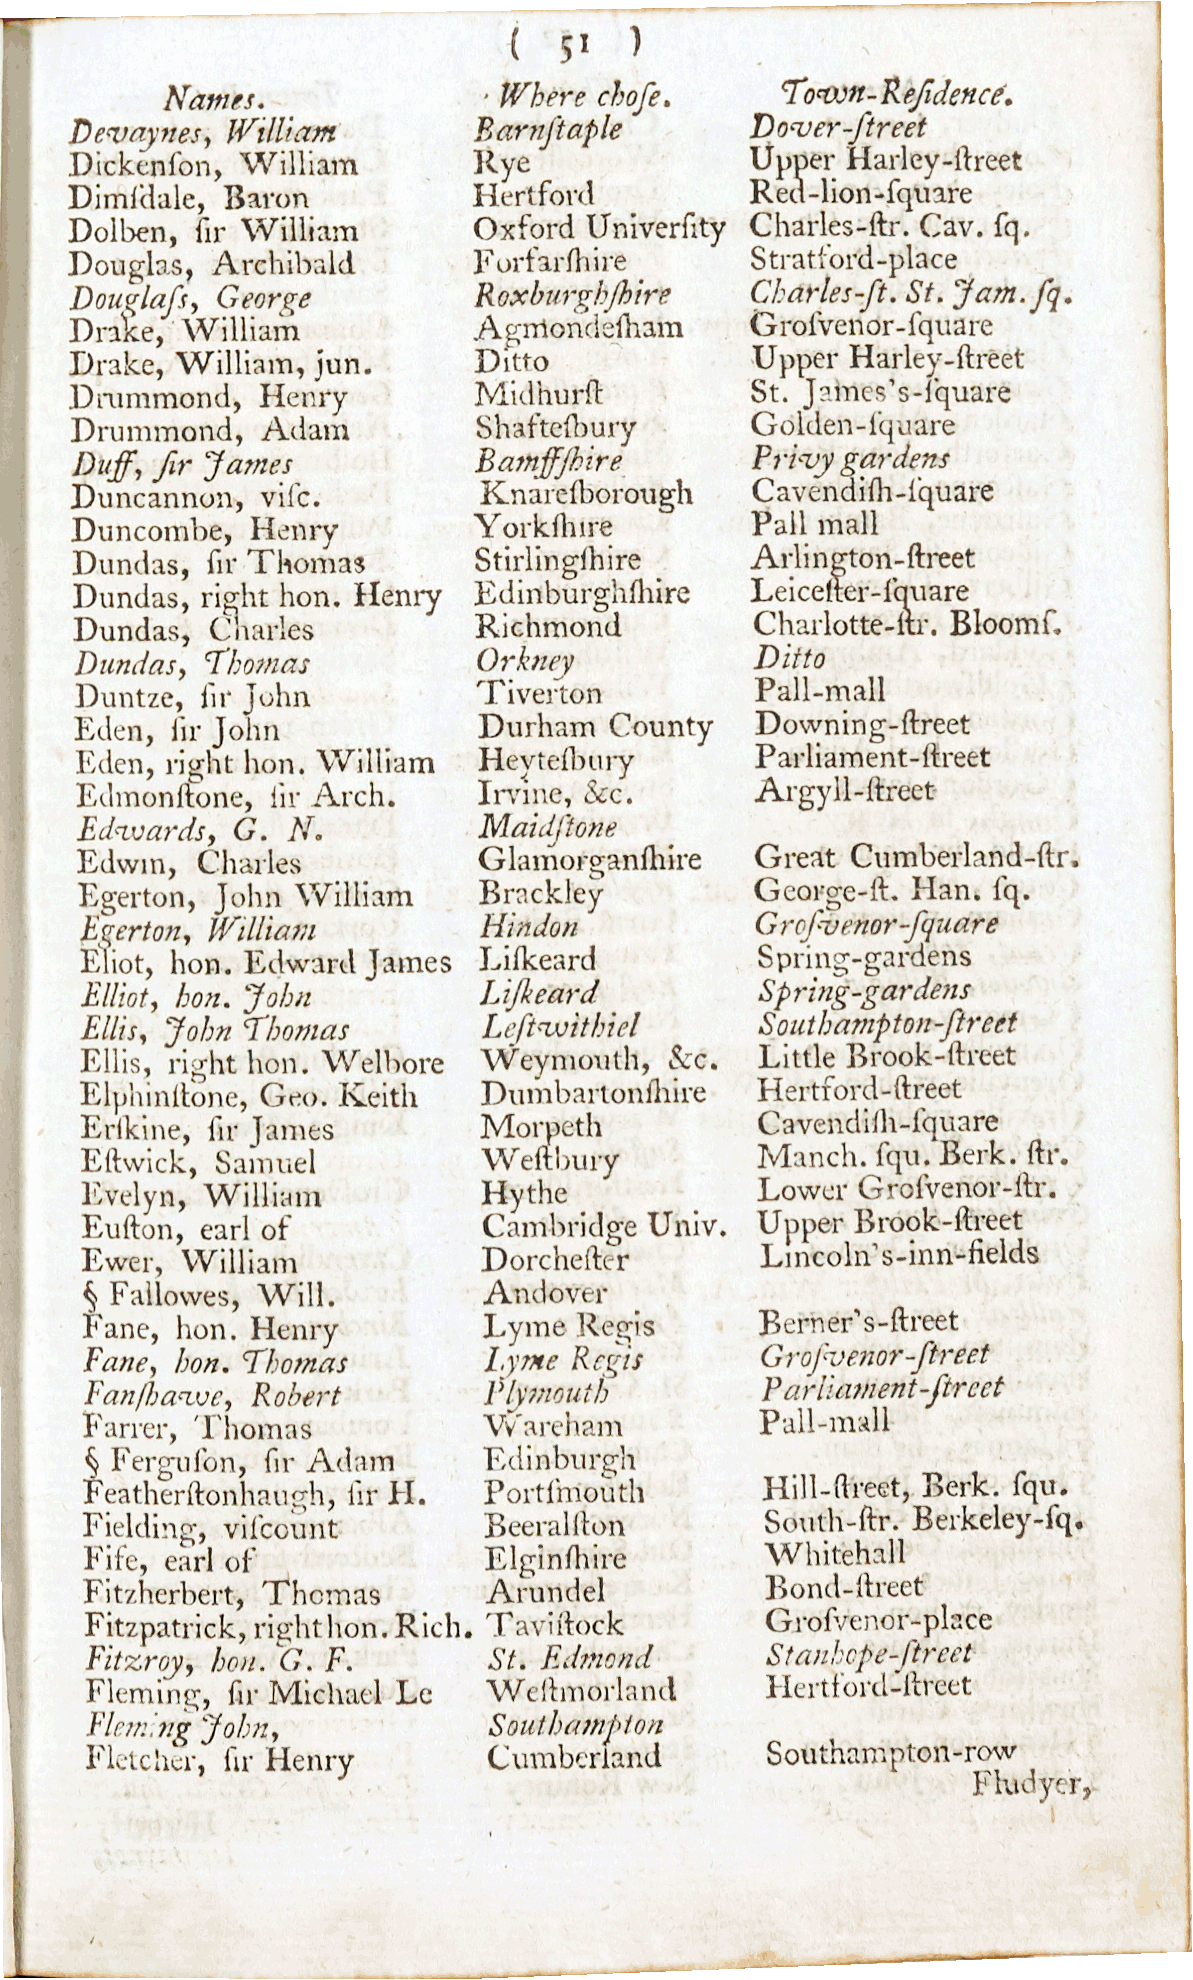 ( 51 )
Names. Where choſe. Town-Reſidence.
Devaynes, William Barnſtaple Dover-ſtreet
Dickenſon, William Rye Upper Harley-ſtreet
Dimſdale, Baron Hertford Red-lion-ſquare
Dolben, ſir William Oxford Univerſity Charles-ſtr. Cav. ſq.
Douglas, Archibald Forfarſhire Stratford-place
Douglaſs, George Roxburghſhire Charles-ſt. St. Jam. ſq.
Drake, William Agmondeſham Groſvenor-ſquare
Drake, William, jun. Ditto Upper Harley-ſtreet
Drummond, Henry Midhurſt St. James's-ſquare
Drummond, Adam Shafteſbury Golden-ſquare
Duff, ſir James Bamffſhire Privy gardens
Duncannon, viſc. Knareſborough Cavendiſh-ſquare
Duncombe, Henry Yorkſhire Pall mall
Dundas, ſir Thomas Stirlingſhire Arlington-ſtreet
Dundas, right hon. Henry Edinburghſhire Leiceſter-ſquare
Dundas, Charles Richmond Charlotte-ſtr. Bloomſ.
Dundas, Thomas Orkney Ditto
Duntze, ſir John Tiverton Pall-mall
Eden, ſir John Durham County Downing-ſtreet
Eden, right hon. William Heyteſbury Parliament-ſtreet
Edmonſtone, ſir Arch. Irvine, &c. Argyll-ſtreet
Edwards, G. N. Maidſtone
Edwin, Charles Glamorganſhire Great Cumberland-ſtr.
Egerton, John William Brackley George-ſt. Han. ſq.
Egerton, William Hindon Groſvenor-ſquare
Eliot, hon. Edward James Liſkeard Spring-gardens
Elliot, hon. John Liſkeard Spring-gardens
Ellis, John Thomas Leſtwithiel Southampton-ſtreet
Ellis, right hon. Welbore Weymouth, &c. Little Brook-ſtreet
Elphinſtone, Geo. Keith Dumbartonſhire Hertford-ſtreet
Erſkine, ſir James Morpeth Cavendiſh-ſquare
Eſtwick, Samuel Weſtbury Manch. ſqu. Berk. ſtr.
Evelyn, William Hythe Lower Groſvenor-ſtr.
Euſton, earl of Cambridge Univ. Upper Brook-ſtreet
Ewer, William Dorcheſter Lincoln's-inn-fields
§ Fallowes, Will. Andover
Fane, hon. Henry Lyme Regis Berner's-ſtreet
Fane, hon. Thomas Lyme Regis Groſvenor-ſtreet
Fanſhawe, Robert Plymouth Parliament-ſtreet
Farrer, Thomas Wareham Pall-mall
§ Ferguſon, ſir Adam Edinburgh
Featherſtonhaugh, ſir H. Portſmouth Hill-ſtreet, Berk. ſqu.
Fielding, viſcount Beeralſton South-ſtr. Berkeley-ſq.
Fife, earl of Elginſhire Whitehall
Fitzherbert, Thomas Arundel Bond-ſtreet
Fitzpatrick, right hon. Rich. Taviſtock Groſvenor-place
Fitzroy, hon. G. F. St. Edmond Stanhope-ſtreet
Fleming, ſir Michael Le Weſtmorland Hertford-ſtreet
Fleming John, Southampton
Fletcher, ſir Henry Cumberland Southampton-row
Fludyer,